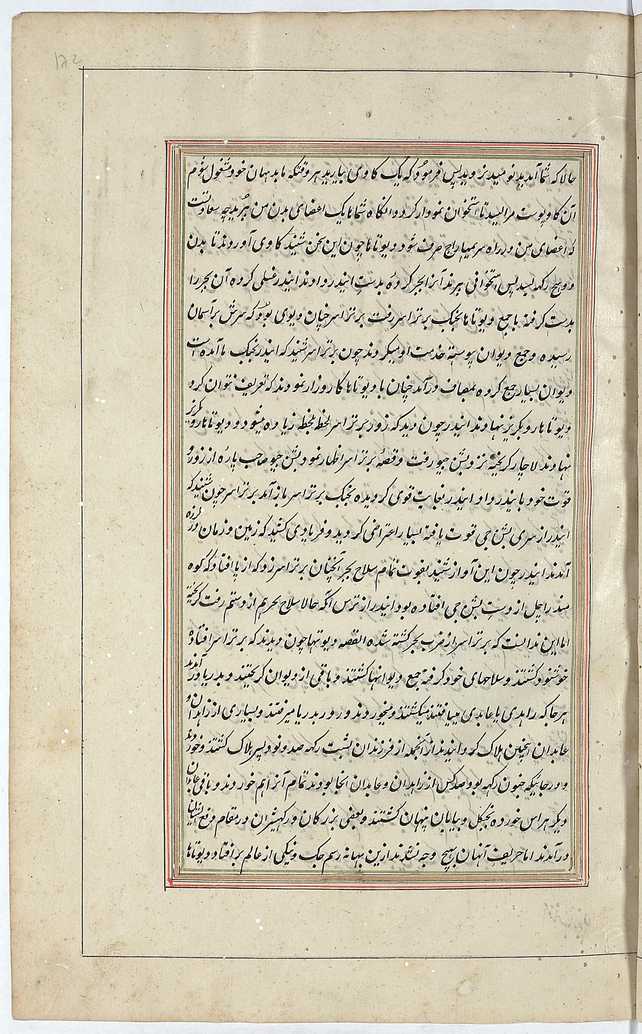 حالا که شما آمدید نومید نروید پس فرمود که یک کاوی بیارید هر وقتیکه ما بدهان خود مشغول شوم
آن کاو پوست مرا لیسد تا استخوان نمودار کردد انکاه شماها یک اعضای بدن من ببرید چه سعادتست
که اعضای من در راه سرمهاراج صرف شود دیوتاها چون این سخن شنیدند کاوی آوردند تا بدن
ددیچ رکهه لیسید پس استخوانی ببرند آنرا بجر کرده بدست ایندر دادند ایندر غسلی کرده آن بجر را
بدست کرفته با جمع دیوتاها بجنک برتراسر رفت برتراسر چنان دیوی بود که سرش بر آسمان
رسیده و جمع دیوان پیوسته خدمت او میکردند چون برتراسر شنید که ایندر بجنک ما آمده است
دیوان بسیار جمع کرده بمصاف درآمد چنان با دیوتاها کارزار نمودند که تعریف نتوان کرد
دیوتاها رو بکریز نهادند ایندر چون دید که زور برتراسر لحظه بلحظه زیاده میشود و دیوتاها رو بکریز
نهادند لاچار کریخته نزد بشن جیو رفت و قصه برتراسر اظهار نمود بشن جیو صاحب پاره از زور و
قوت خود بایندر داد ایندر بغایت قوی کردیده بجنک برتراسر باز آمد برتراسر چون شنید که
ایندر از سری بشن جی قوت یافته بسیار اعتراضی کردید و فریادی کشید که زمین و زمان در لرزه
آمدند ایندر چون این آواز شنید بقوت تمام سلاح بجر آنچنان برتراسر زد که از پا افتاد که کوه
مندراچل از دست بشن جی افتاده بود ایندر از ترس آنکه حالا سلاح بجر هم از دستم رفت کریخته
اما این ندانست که برتراسر از ضرب بجر کشته شده القصه دیوتها چون دیدند که برتراسر افتاده
خوشنود کشتند و سلاحهای خود کرفته جمع دیوانها کشتند و باقی از دیوان کریختند و بدریا در آمدند
هر جا که زاهدی یا عابدی میافتند میکشتند و میخوردند و روز بدریا میرفتند و بسیاری از زاهدان و
عابدان اینچنین هلاک کردانیدند از آنجمله از فرزندان بشست رکهه صد و نود پس هلاک کشتند و خوردند
و در جائیکه چنون رکهه بود صد کس از زاهدان و عابدان آنجا بودند تمام آنرا هم خوردند و باقی عابدان
دیکر هراس خورده بجنکل و بیابان پنهان کشتند و بعضی بزرکان و رکهیشران در مقام دفع ایشان
درآمدند اما حریف آنهان بهیچ وجه نشدند ازین بهانه رسم جک و نیکی از عالم برافتاد دیوتاها